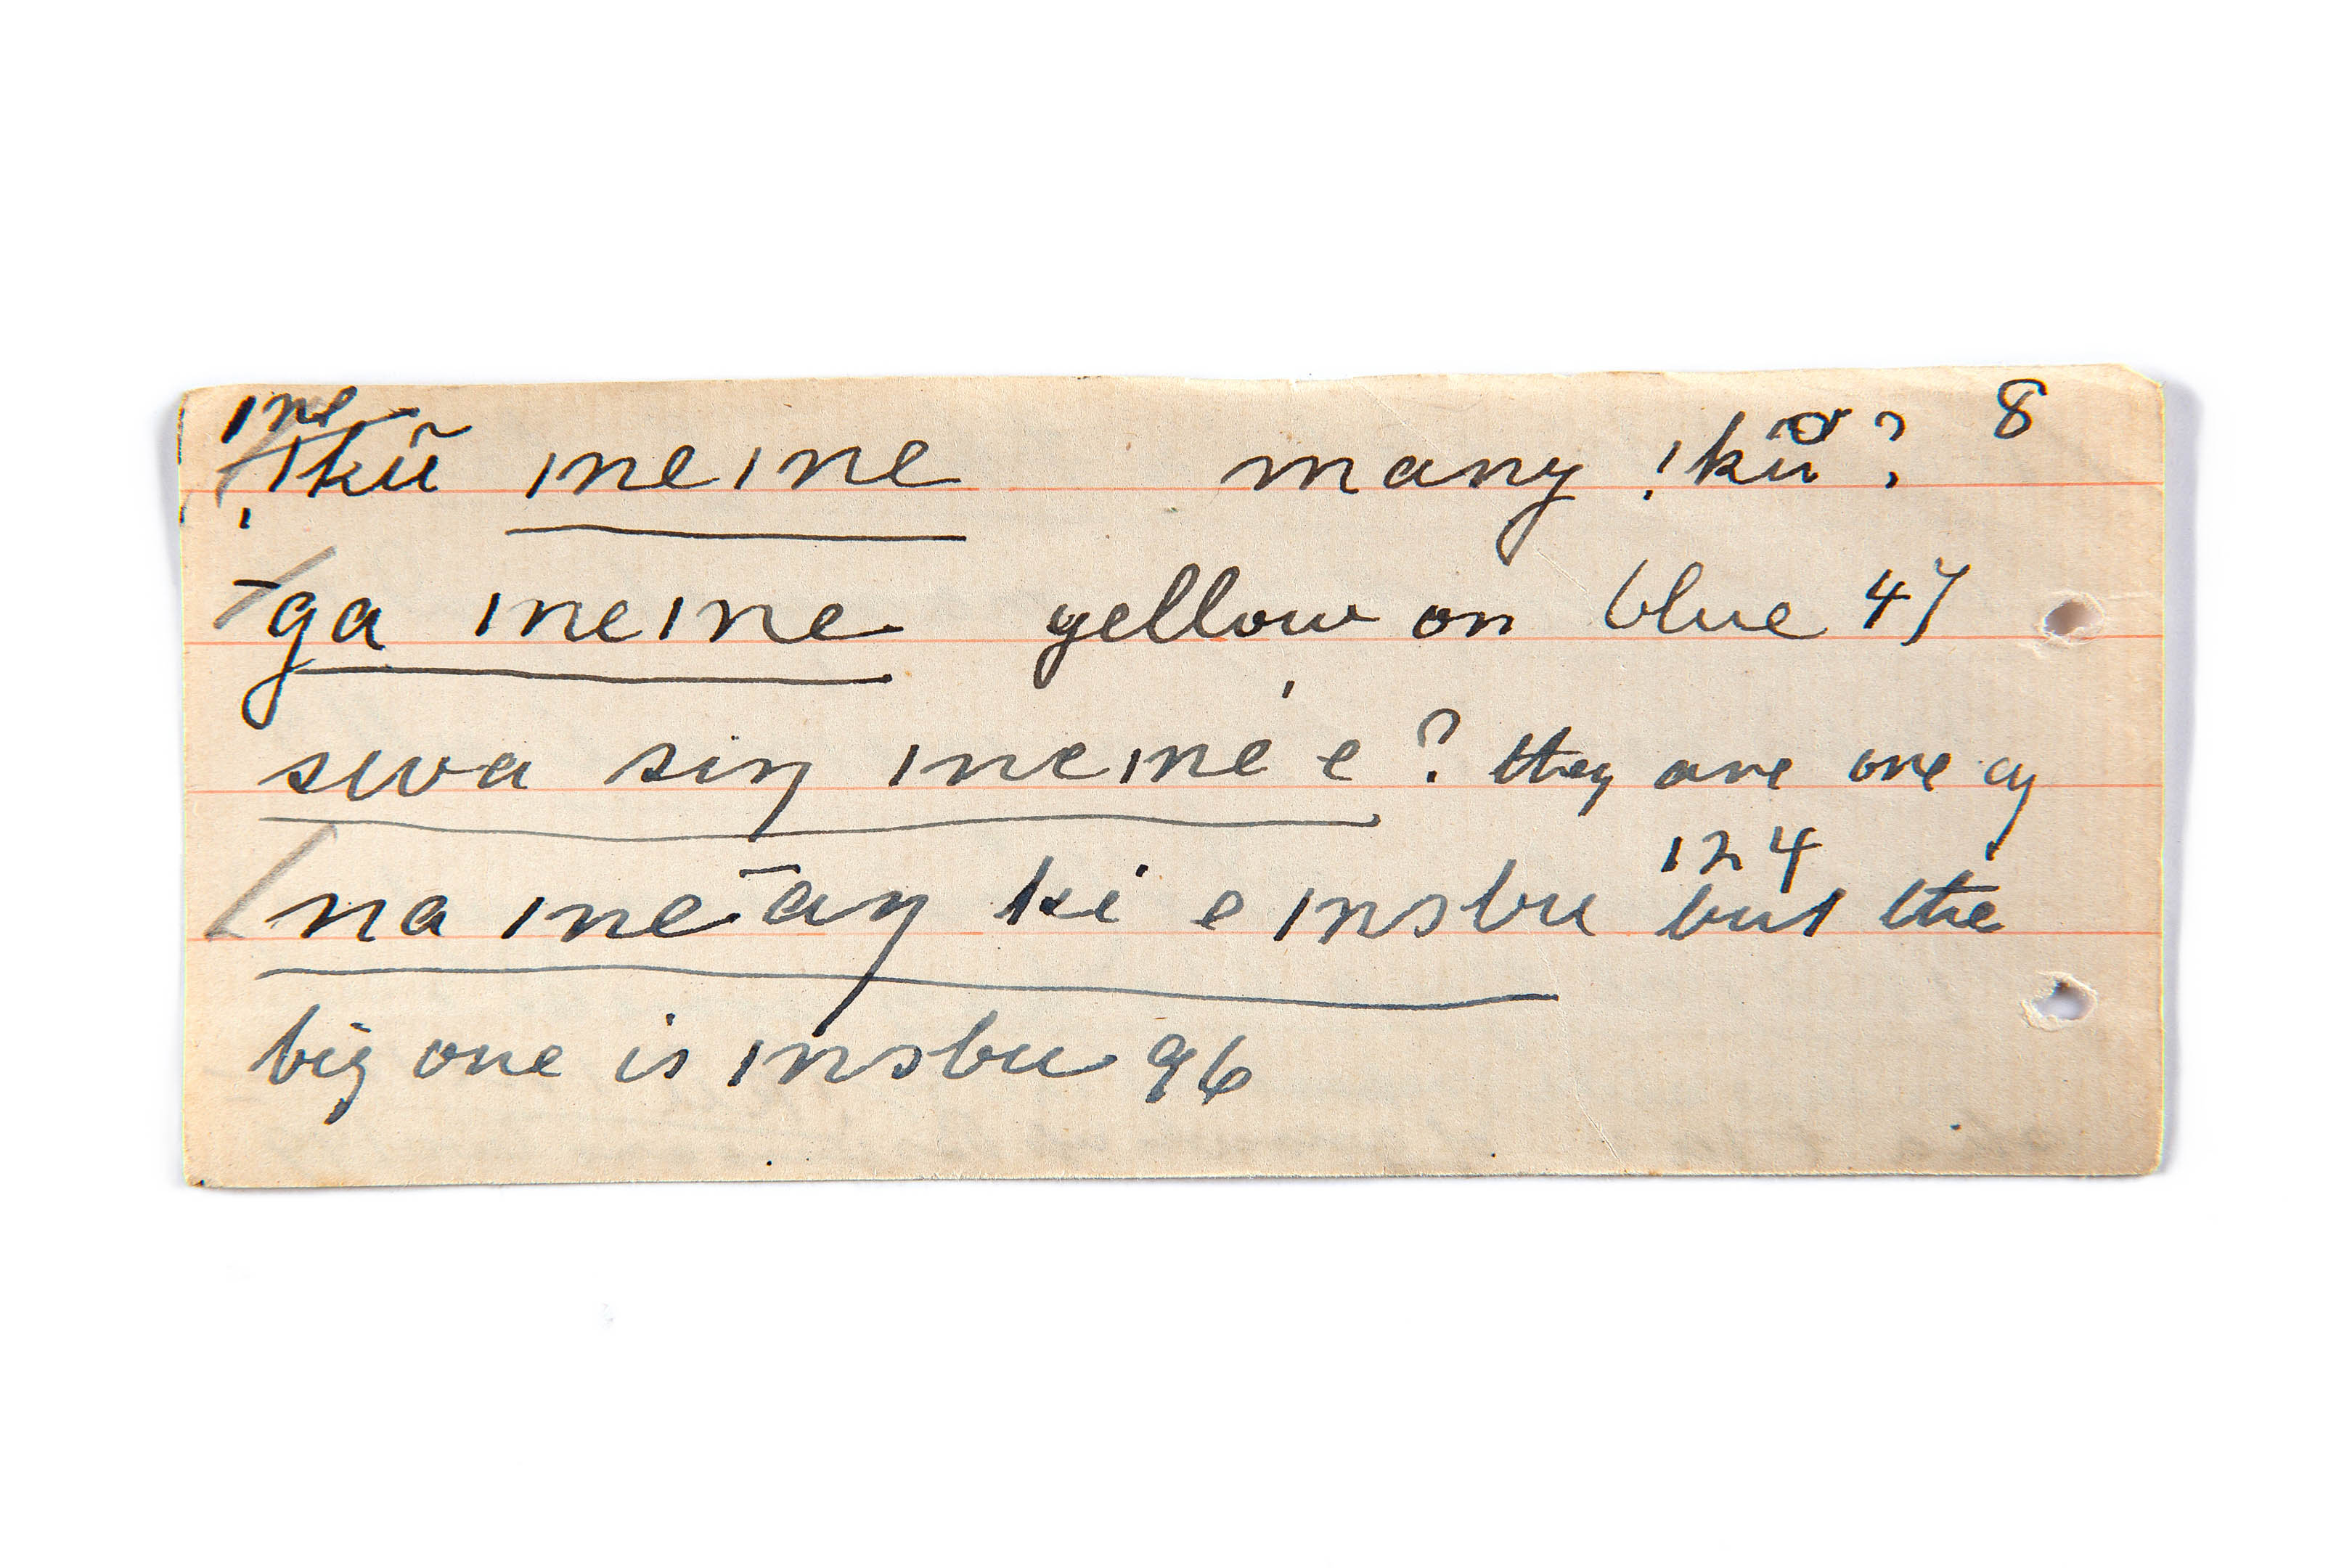 ıne
ıkũ ıneıne many !kũ? 8
ga ıneıne yellow on blue 47
swa siŋ ıneıne e? they are one ay
na ıne āŋ ki e ınsbu 124 but the
big one is ınsbu 96